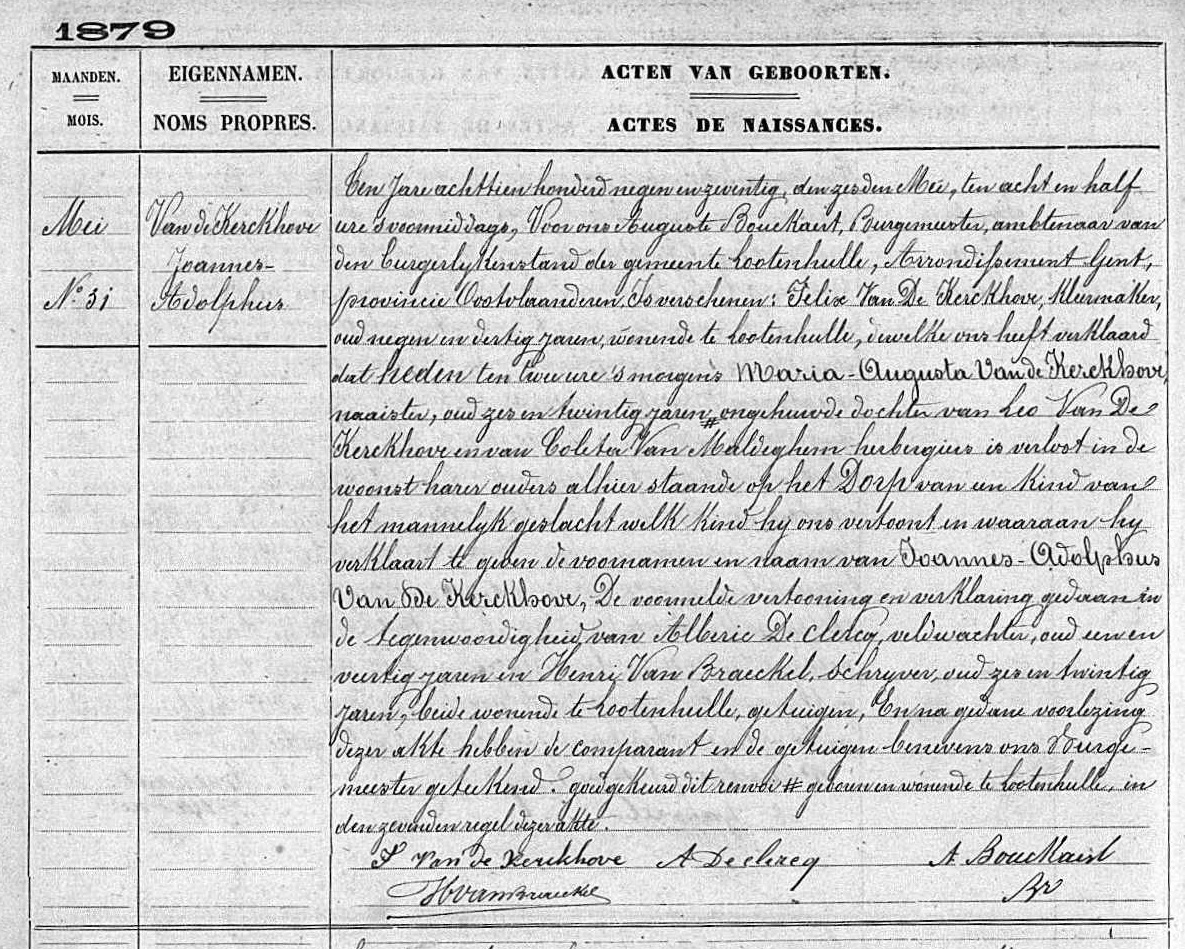 1879
MAANDEN.
MOIS.
EIGENNAMEN.
NOMS PROPRES.
ACTEN VAN GEBOORTEN.
ACTES DE NAISSANCES.
Mei
N.º 31
Van de Kerckhove
Joannes-
Adolphus
Ten Jare achttien honderd negen en zeventig, den zesden Mei, ten acht en half
ure s'voormiddags, Voor ons Auguste Bouckaert, Burgemeester, ambtenaar van
den burgerlyken stand der gemeente Lootenhulle, Arrondissement Gent,
provincie Oostvlaanderen, Is verschenen: Felix Van De Kerckhove, kleermaker,
oud negen en dertig jaren, wonende te Lootenhulle, dewelke ons heeft verklaard
dat heden ten twee ure 's morgens Maria-Augusta Van de Kerckhove,
naaister, oud zes en twintig jaren # ongehuwde dochter van Leo Van De
Kerckhove en van Coleta Van Maldeghem herbergiers is verlost in de
woonst harer ouders alhier staande op het Dorp van een kind van
het mannelyk geslacht welk kind hy ons vertoont en waaraan hy
verklaart te geven de voornamen en naam van Joannes-Adolphus
Van De Kerckhove, De voormelde vertooning en verklaring gedaan in
de tegenwoordigheid van Alberic De Clercq, veldwachter, oud een en
veertig jaren en Henri Van Braeckel, schryver, oud zes en twintig
jaren, beide wonende te Lootenhulle, getuigen, En na gedane voorlezing
dezer akte hebben de comparant en de getuigen benevens ons Burge-
meester geteekend. goedgekeurd dit renvoi # geboren en wonende te Lootenhulle, in
den zevenden regel dezer akte.
F Van de Kerckhove A De clercq A. Bouckaert
H van Braeckel Br